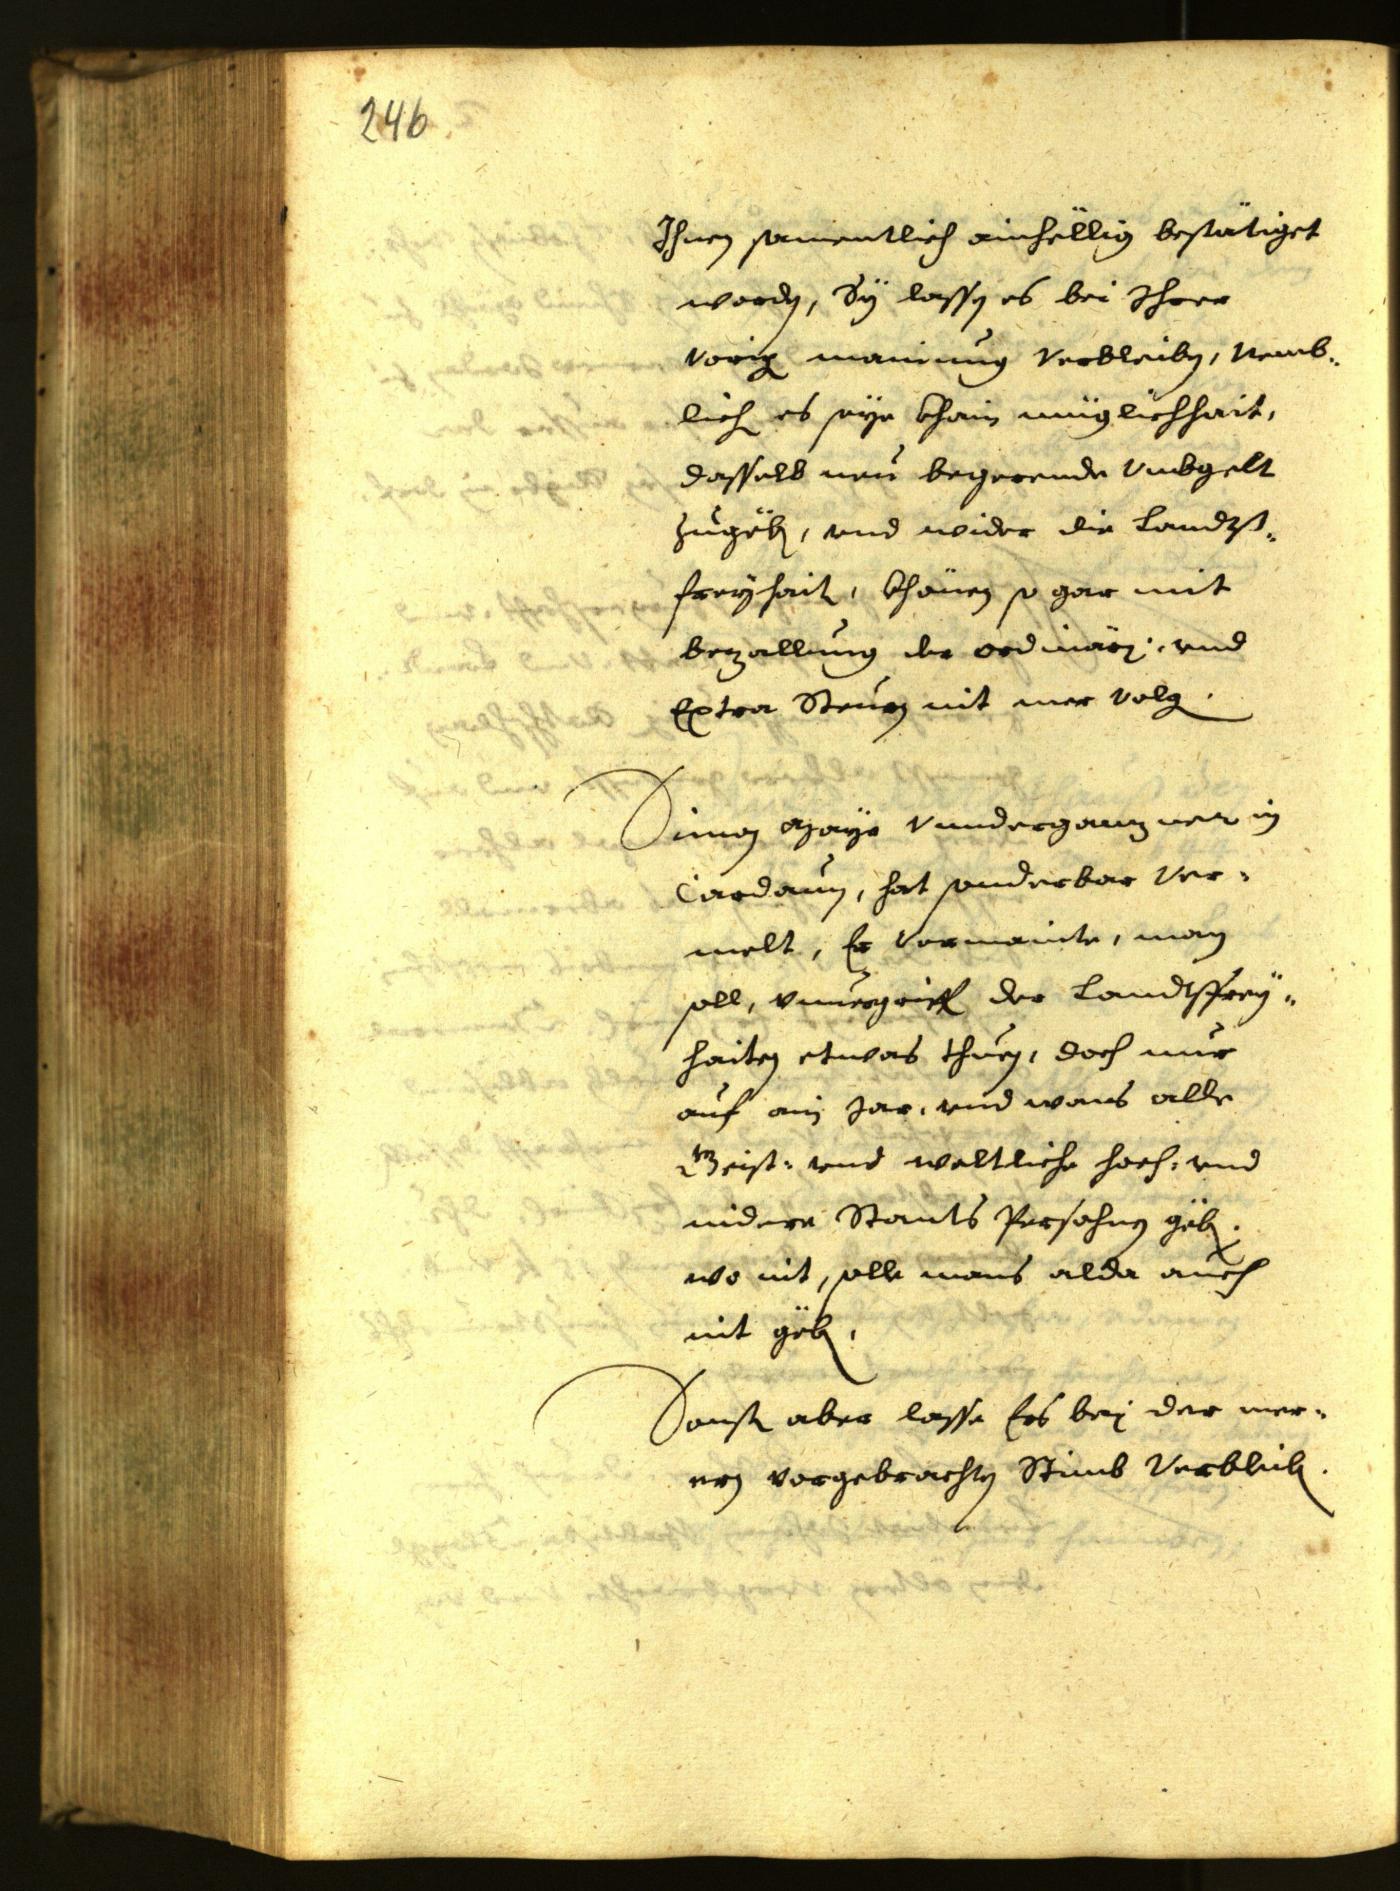 246
Ihnen samentlich ainhellig bestätiget
worden, Sÿ lassen es bei Ihrer
vorigen mainung verbleiben, Nemb-
lich es seÿe khain müglichhait,
dasselb neu begerende Umbgelt
zugëben, und wider die Landts-
freÿhaiten, khönen so gar mit
bezallung der ordinari: und
Extra Steurn nit mer volgen.
Simon Maÿr Underganzner in
Cardaun, hat sonderbar Ver-
melt, Er vermainte, man
soll, unvergriffen der Landtsfreÿ-
haiten etwas thuen, doch nur
auf ain Jar, und wans alle
Geist: und weltliche hoch: und
nidere Stants Persohnen gëben.
wo nit, solle mans alda auch
nit gëben.
Sonsten aber lasse Ers bei der mer-
ern vorgebrachten Stimb Verbleiben.